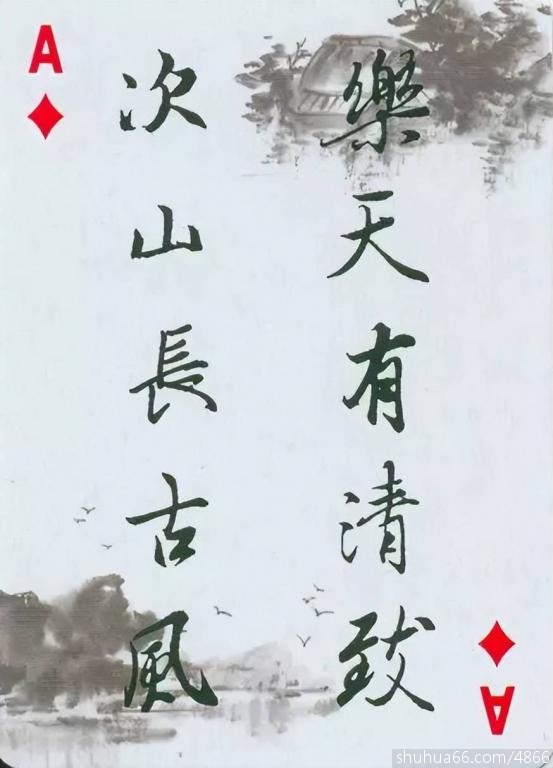 A
樂天有清致
次山長古風
A
shuhua66.com/4866